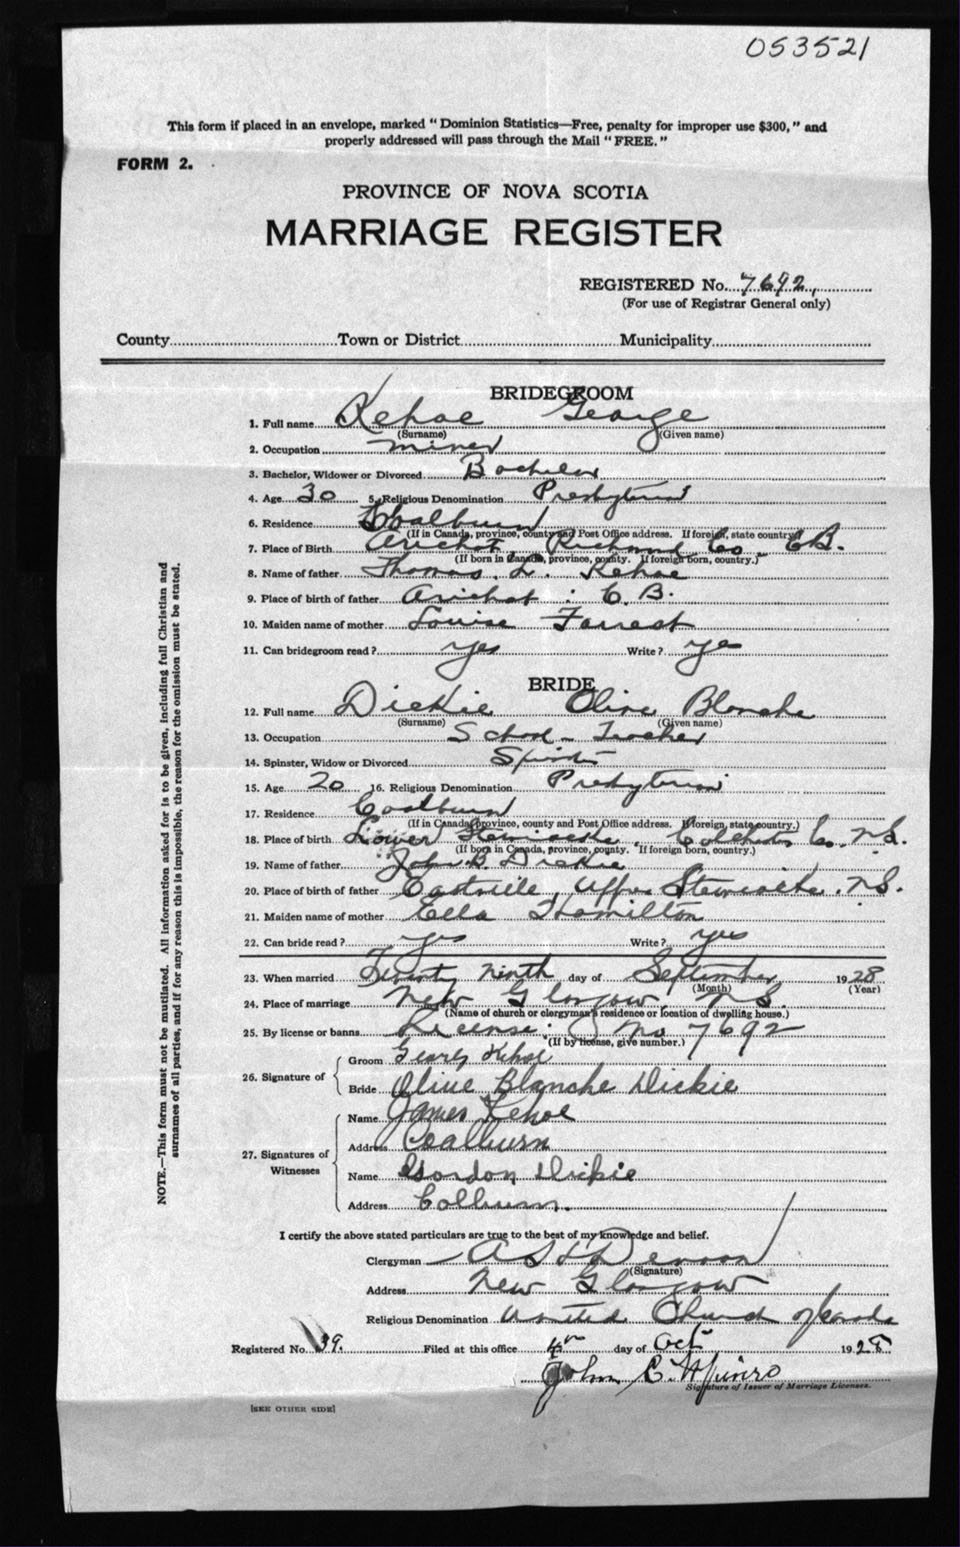 053521
This form if placed in an envelope, marked "Dominion Statistics—Free, penalty for improper use $300," and
properly addressed will pass through the Mail "FREE."
FORM 2.
PROVINCE OF NOVA SCOTIA
MARRIAGE REGISTER
REGISTERED No. 7692
(For use of Registrar General only)
County Town or District Municipality
BRIDEGROOM
1. Full name Kehoe George
(Surname) (Given name)
2. Occupation miner
3. Bachelor, Widower or Divorced Bachelor
4. Age 30 5. Religious Denomination Presbyterian
6. Residence Coalburn
(If in Canada, province, county and Post Office address. If foreign, state country.)
7. Place of Birth Arichat, Richmond Co. C.B.
(If born in Canada, province, county. If foreign born, country.)
8. Name of father Thomas L. Kehoe
9. Place of birth of father Arichat C.B.
10. Maiden name of mother Louise Forrest
11. Can bridegroom read? yes Write? yes
BRIDE
12. Full name Dickie Olive Blanche
(Surname) (Given name)
13. Occupation School-Teacher
14. Spinster, Widow or Divorced Spinster
15. Age 20 16. Religious Denomination Presbyterian
17. Residence Coalburn
(If in Canada, province, county and Post Office address. If foreign, state country.)
18. Place of birth Lower Stewiacke, Colchester Co. N.S.
(If born in Canada, province, county. If foreign born, country.)
19. Name of father John B. Dickie
20. Place of birth of father Eastville, Upper Stewiacke, N.S.
21. Maiden name of mother Ella Hamilton
22. Can bride read? yes Write? yes
23. When married Twenty ninth day of September 1928
(Month) (Year)
24. Place of marriage New Glasgow, N.S.
(Name of church or clergyman's residence or location of dwelling house.)
25. By license or banns License No 7692
(If by license, give number.)
26. Signature of
Groom George Kehoe
Bride Olive Blanche Dickie
27. Signatures of Witnesses
Name James Kehoe
Address Coalburn
Name Gordon Dickie
Address Colburn.
I certify the above stated particulars are true to the best of my knowledge and belief.
Clergyman
(Signature)
Address New Glasgow
Religious Denomination United Church of Canada
Registered No. 39. Filed at this office 4th day of Oct 1928
John C. Munro
Signature of Issuer of Marriage Licenses.
[SEE OTHER SIDE]
NOTE.—This form must not be mutilated. All information asked for is to be given, including full Christian and
surnames of all parties, and if for any reason this is impossible, the reason for the omission must be stated.